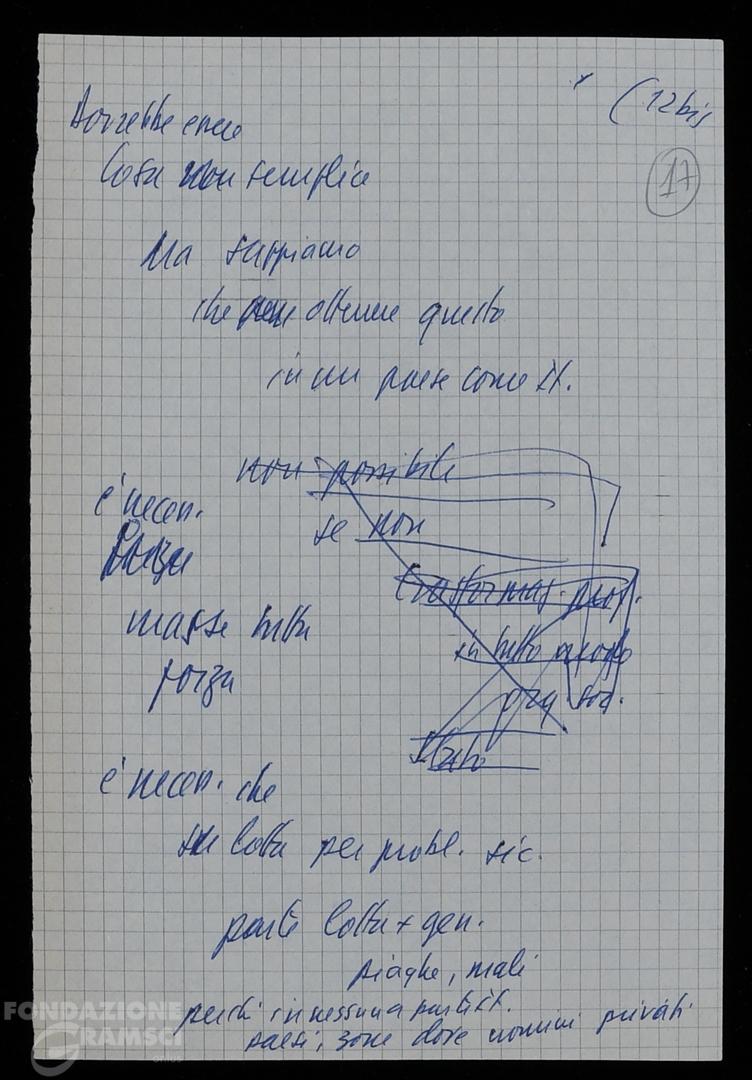 (12 bis
17
Dovrebbe essere
Cosa non semplice
Ma sappiamo
che per ottenere questo
in un paese come It.
non possibile
se non
trasformaz. prof.
in tutto
org. soc.
Stato
è necess.
Forza
masse tutta
forza
è necess. che
su lotta per probl. sic.
parte lotta + gen.
piaghe, mali
perché in nessuna parte It.
paesi, zone dove uomini privati
FONDAZIONE
GRAMSCI
onlus